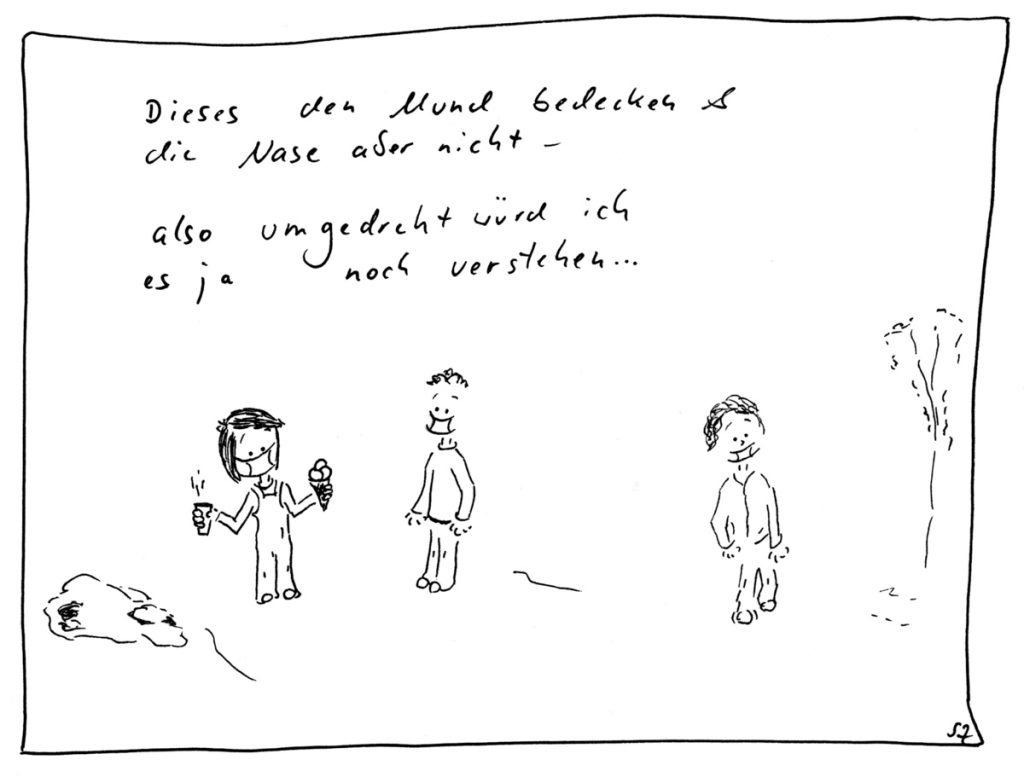 Dieses den Mund bedecken &
die Nase aber nicht –
also umgedreht würd ich
es ja noch verstehen...
SZ